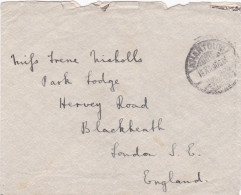 Miss Irene Nicholls
Park Lodge
Hervey Road
Blackheath
London S.E.
England.
KHARTOUM